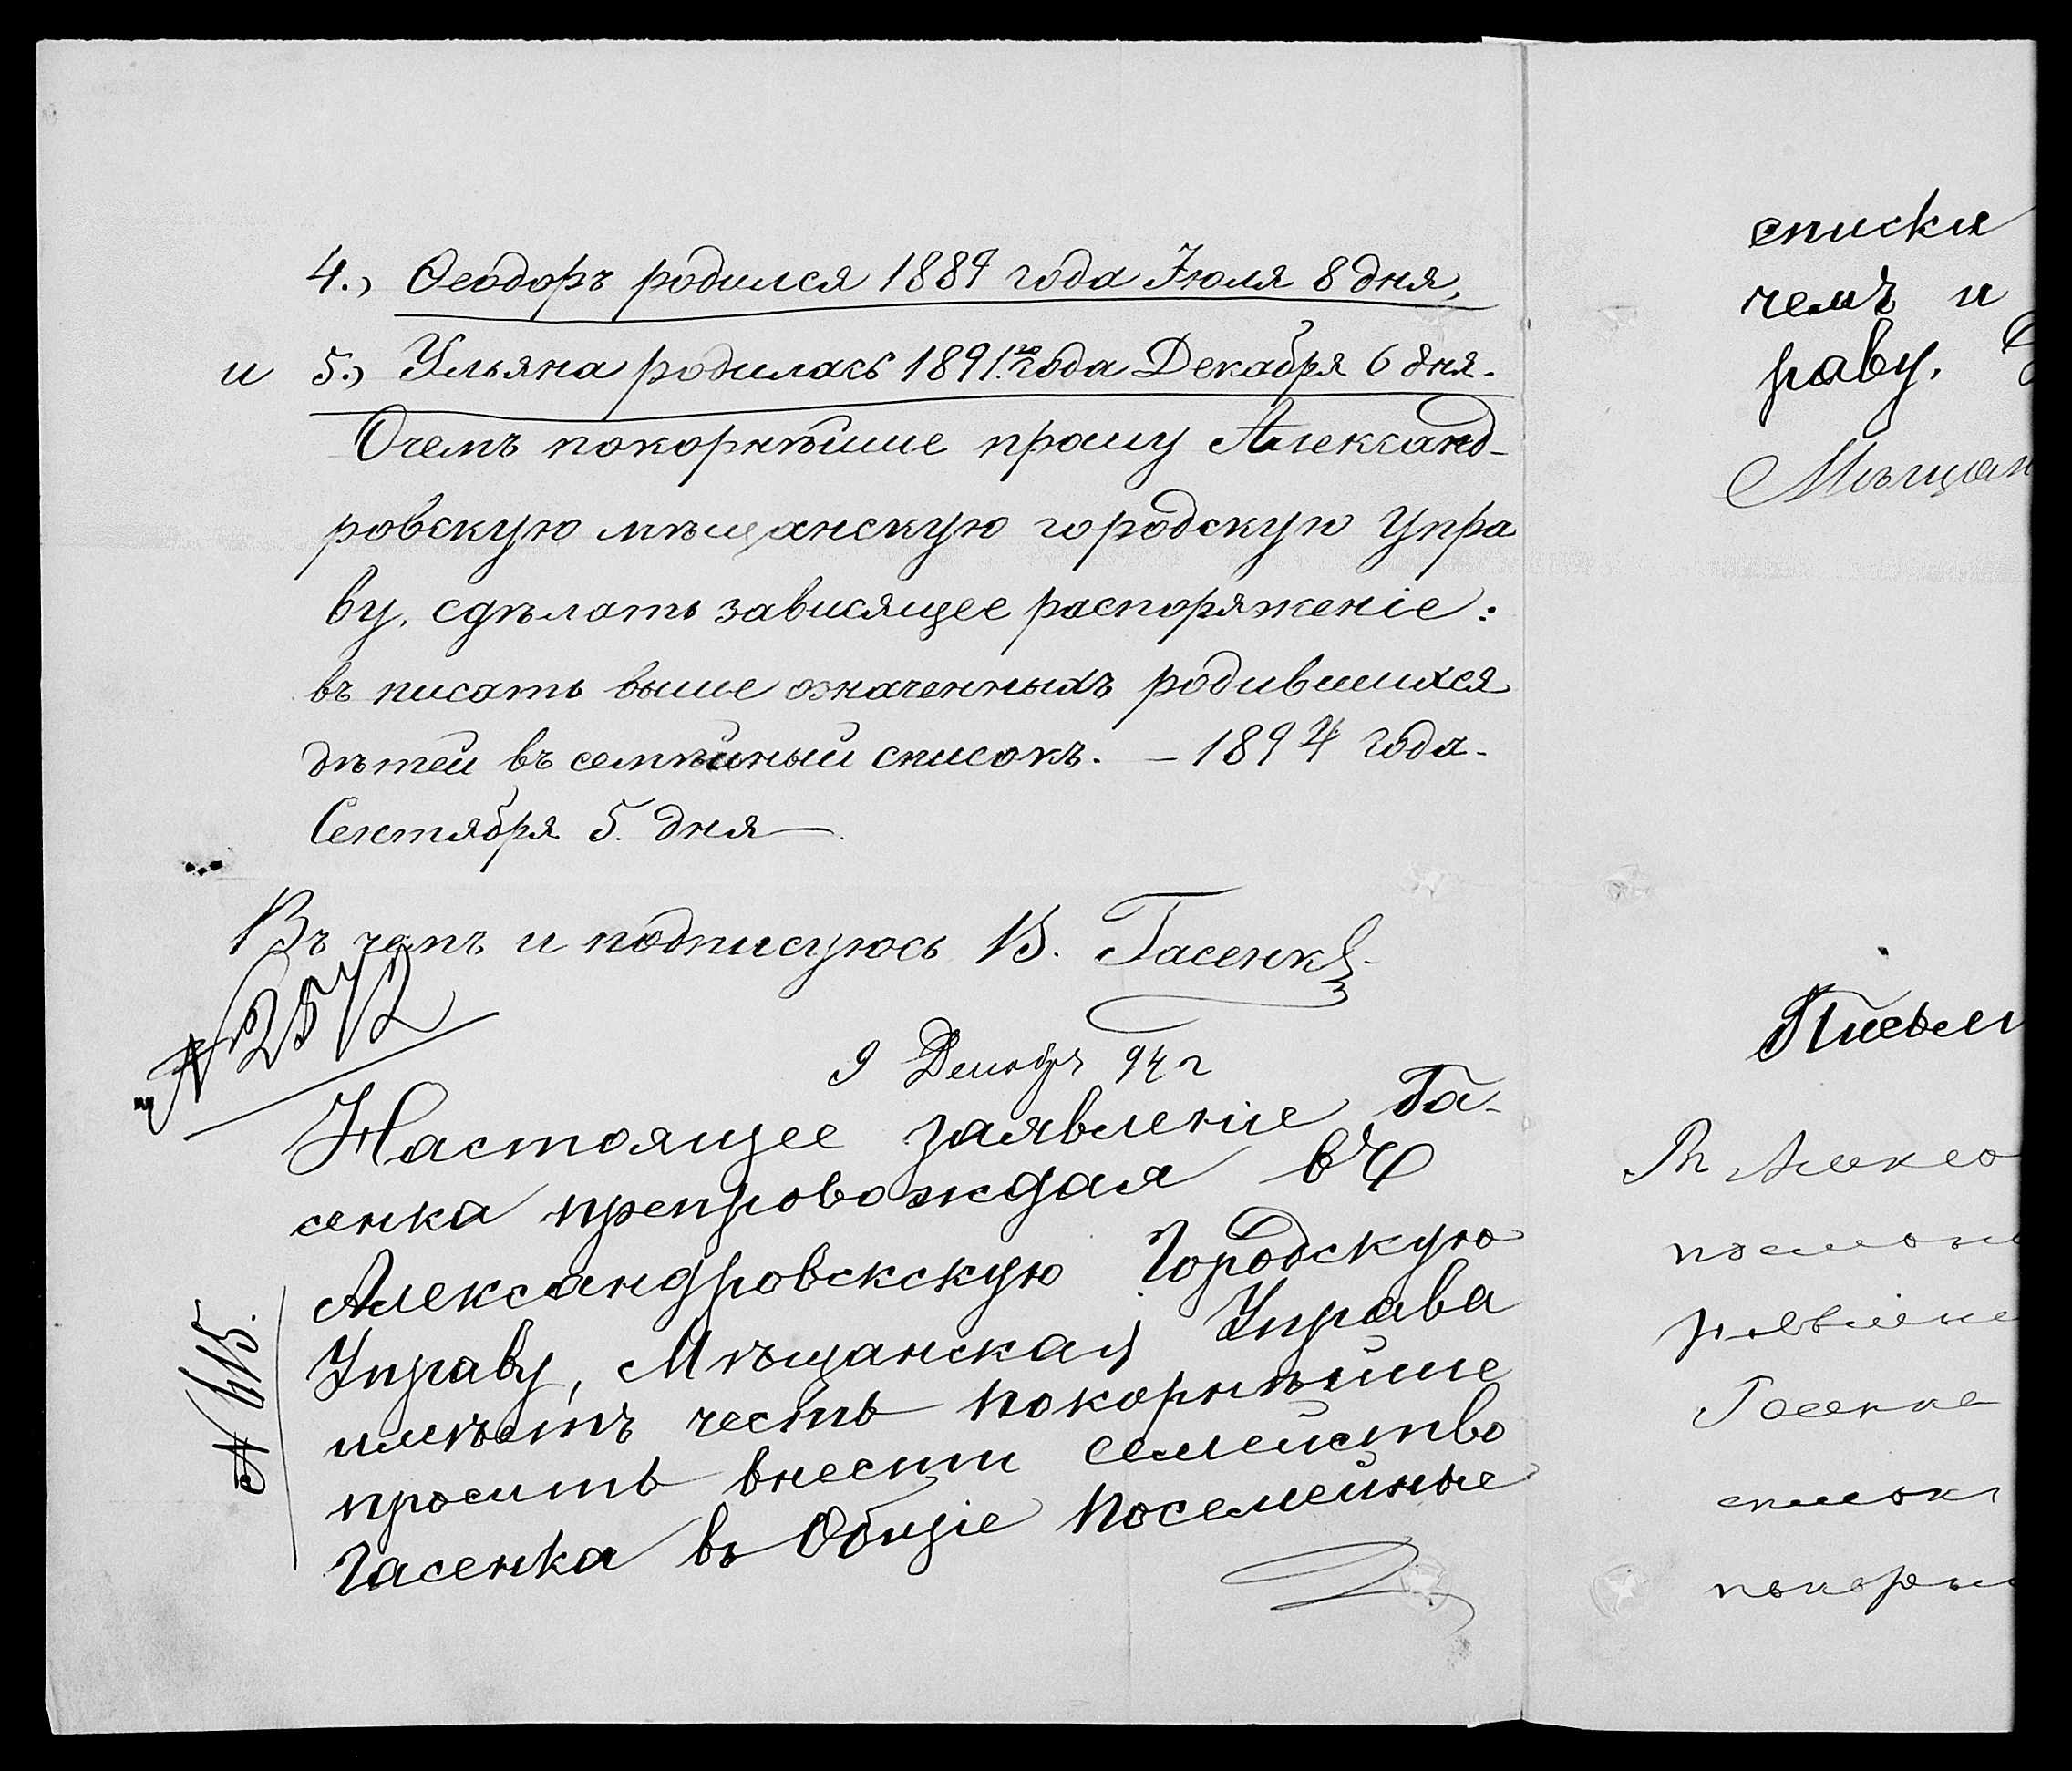 4.) Ѳеодоръ родился 1889 года Іюля 8 дня,
и 5.) Ульяна родилась 1891.го года Декабря 6 дня.
Очемъ покорнѣйше прошу Александ-
ровскую мѣщанскую городскую Упра
ву, сдѣлать зависящее распоряженіе:
въ писать выше означенныхъ родившихся
дѣтей въ семѣйный список. – 1894 года.
Сентября 5. дня
Въ чемъ и подписуюсь В. Гасенко
№ 2572
9 Декабр 94 г
Настоящее заявленіе Га-
сенка препровождая въ
Александровскскую Городскую
Управу, Мѣщанская Управа
имѣетъ честь покорнѣйше
просить внести семейство
Гасенка въ Общіе Посемейные
№ 615.
списки
чемъ и
раву.
Мѣщан
Письм
Алексо
Гасенка
списокъ
покорн